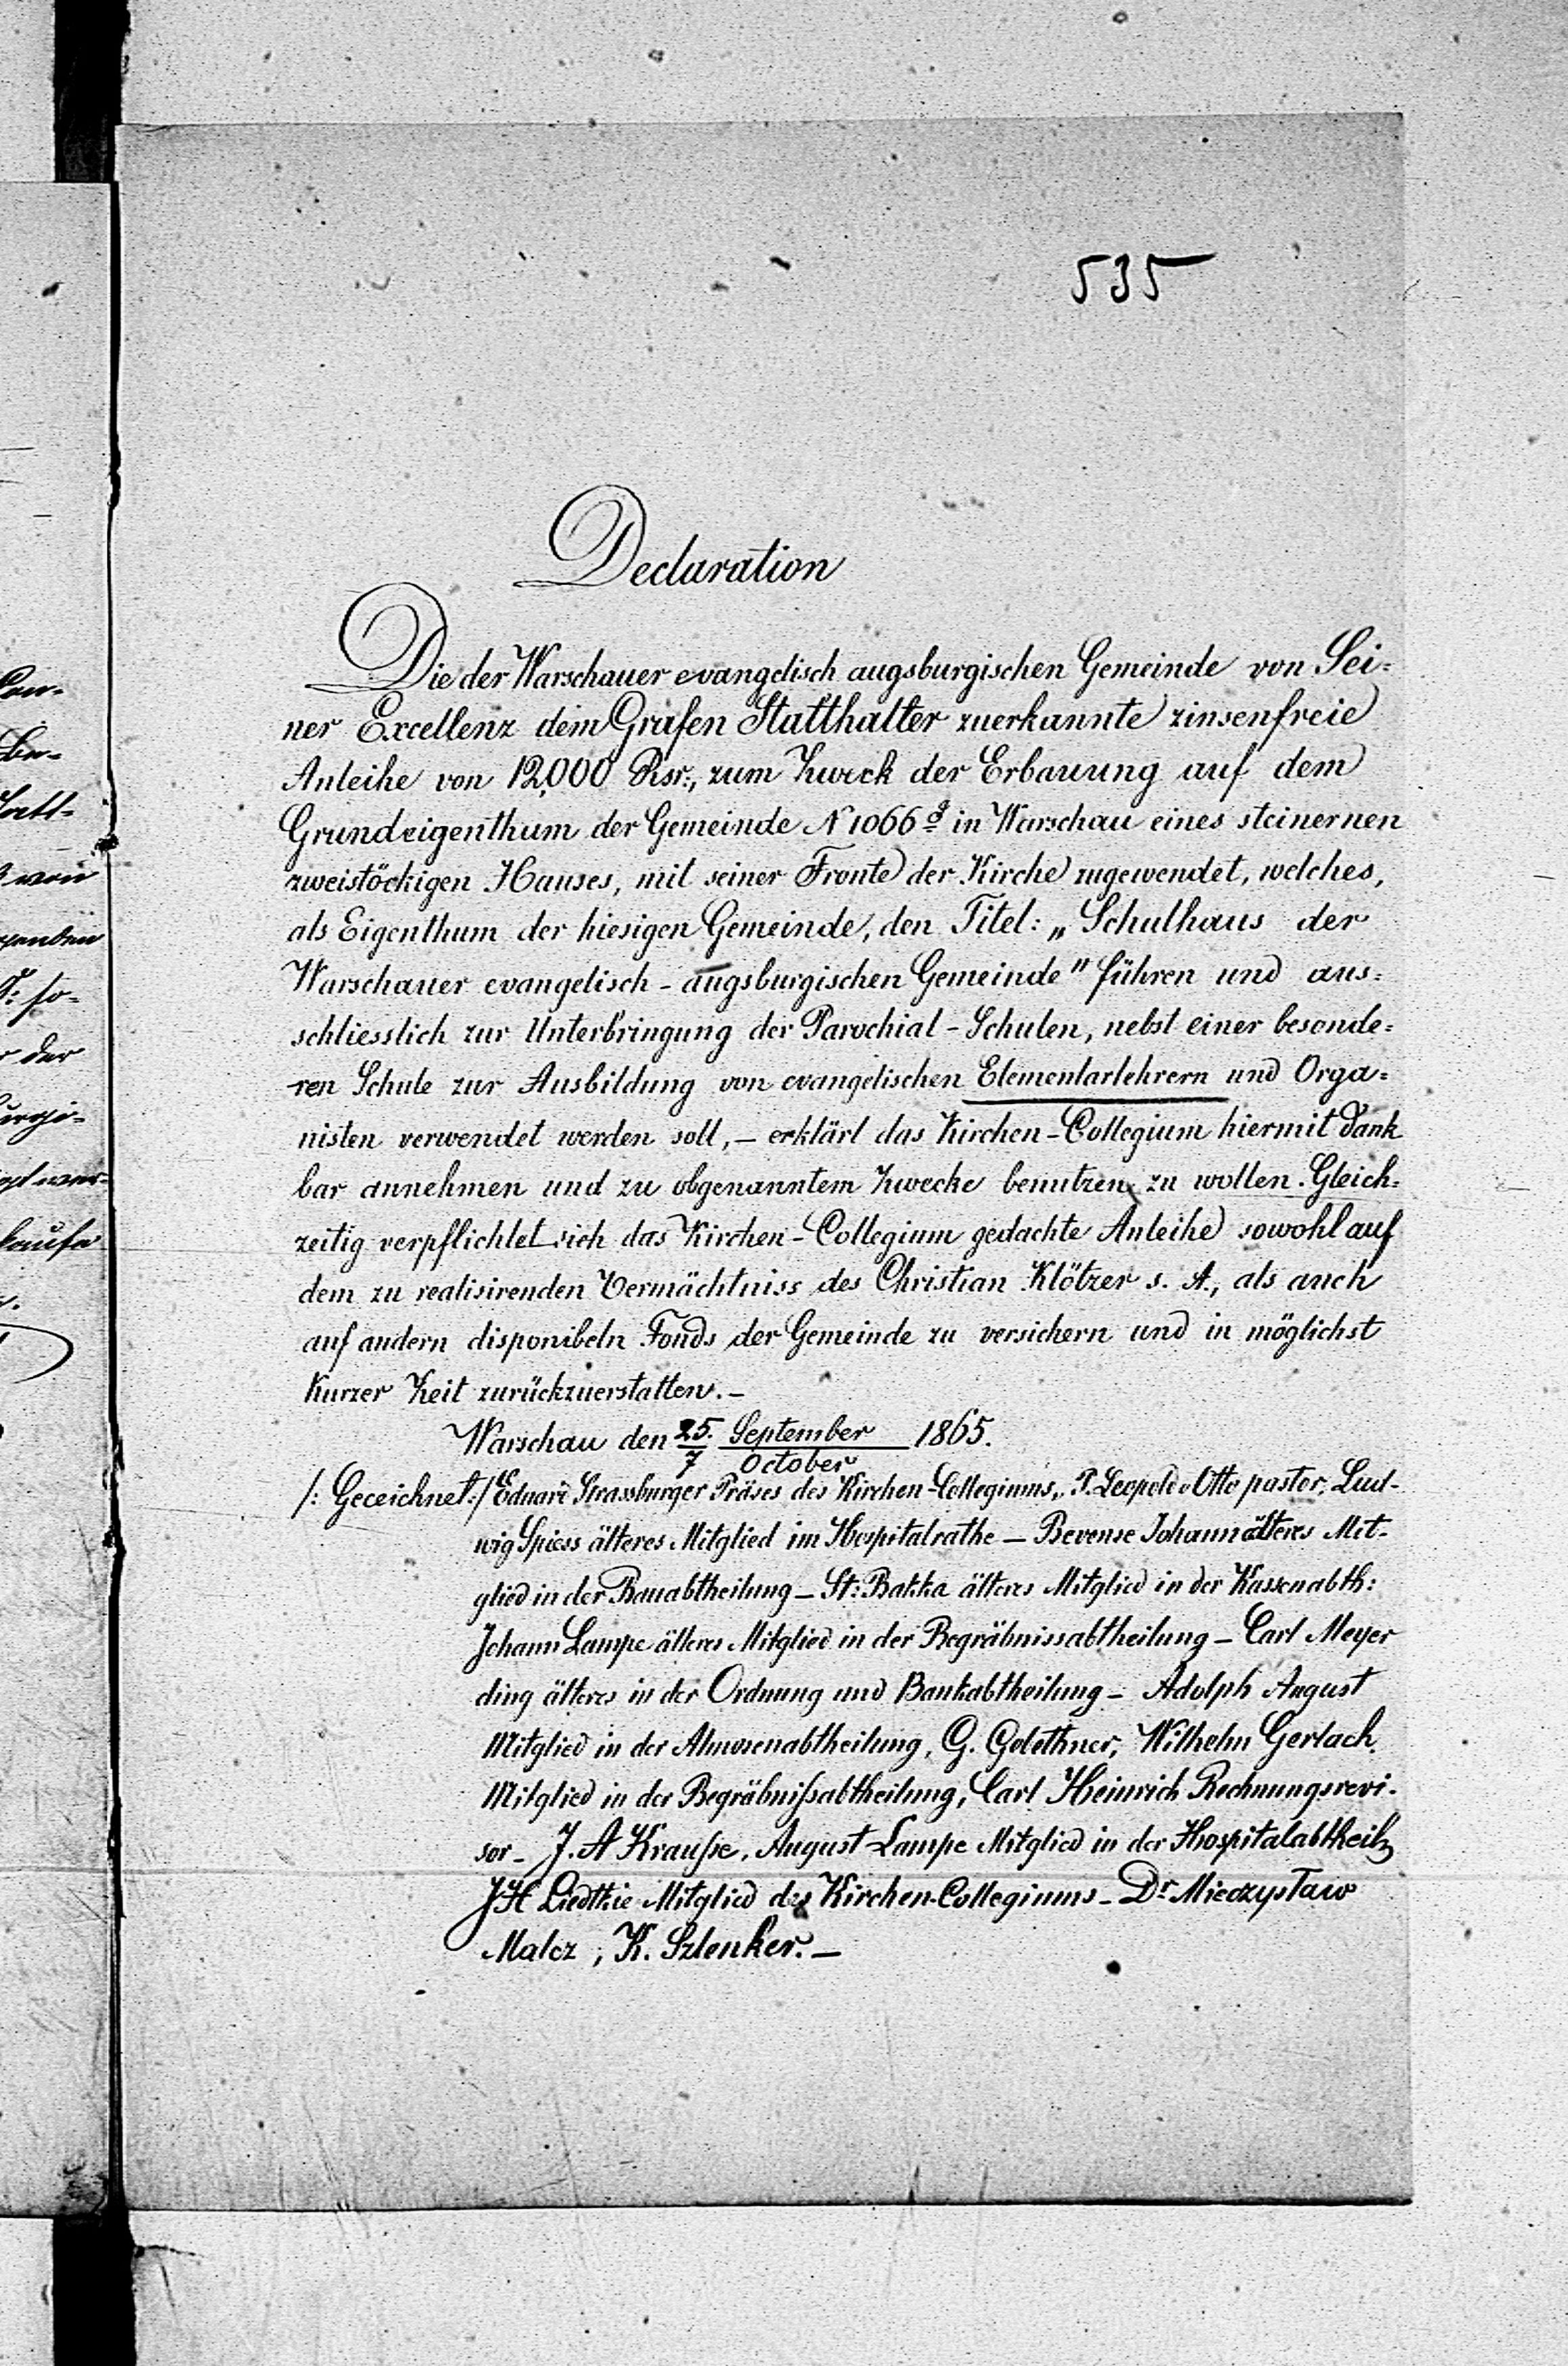 535
Declaration
Die der Warschauer evangelisch augsburgischen Gemeinde von Sei-
ner Excellenz dem Grafen Statthalter zuerkannte zinsenfreie
Anleihe von 12,000 Rsr:, zum Zweck der Erbauung auf dem
Grundeigenthum der Gemeinde N 1066 g in Warschau eines steinernen
zweistöckigen Hauses, mit seiner Fronte der Kirche zugewendet, welches,
als Eigenthum der hiesigen Gemeinde, den Titel: „Schulhaus der
Warschauer evangelisch-augsburgischen Gemeinde" führen und aus-
schliesslich zur Unterbringung der Parochial-Schulen, nebst einer besonde-
ren Schule zur Ausbildung von evangelischen Elementarlehrern und Orga-
nisten verwendet werden soll, – erklärt das Kirchen-Collegium hiermit dank
bar annehmen und zu obgenanntem Zwecke benutzen zu wollen. Gleich-
zeitig verpflichtet sich das Kirchen-Collegium gedachte Anleihe sowohl auf
dem zu realisirenden Vermächtniss des Christian Klötzer s. A., als auch
auf andern disponibeln Fonds der Gemeinde zu versichern und in möglichst
kurzer Zeit zurückzuerstatten. –
Warschau den 25. September 1865.
7 October
/: Gezeichnet :/ Eduard Strassburger Präses des Kirchen-Collegiums, P. Leopold v Otto pastor, Lud-
wig Spiess älteres Mitglied im Hospitalrathe – Bevense Johann älteres Mit-
glied in der Bauabtheilung – St: Bakka älteres Mitglied in der Kassenabth:
Johann Lampe älteres Mitglied in der Begräbnissabtheilung – Carl Meyer
ding älteres in der Ordnung und Bankabtheilung – Adolph August
Mitglied in der Almosenabtheilung, G. Gelethner, Wilhelm Gerlach
Mitglied in der Begräbnißabtheilung, Carl Heinrich Rechnungsrevi-
sor – J. A Krauße, August Lampe Mitglied in der Hospitalabtheilg
J H Liedtkie Mitglied des Kirchen-Collegiums – Dr Mieczysław
Malcz, K. Szlenker. –